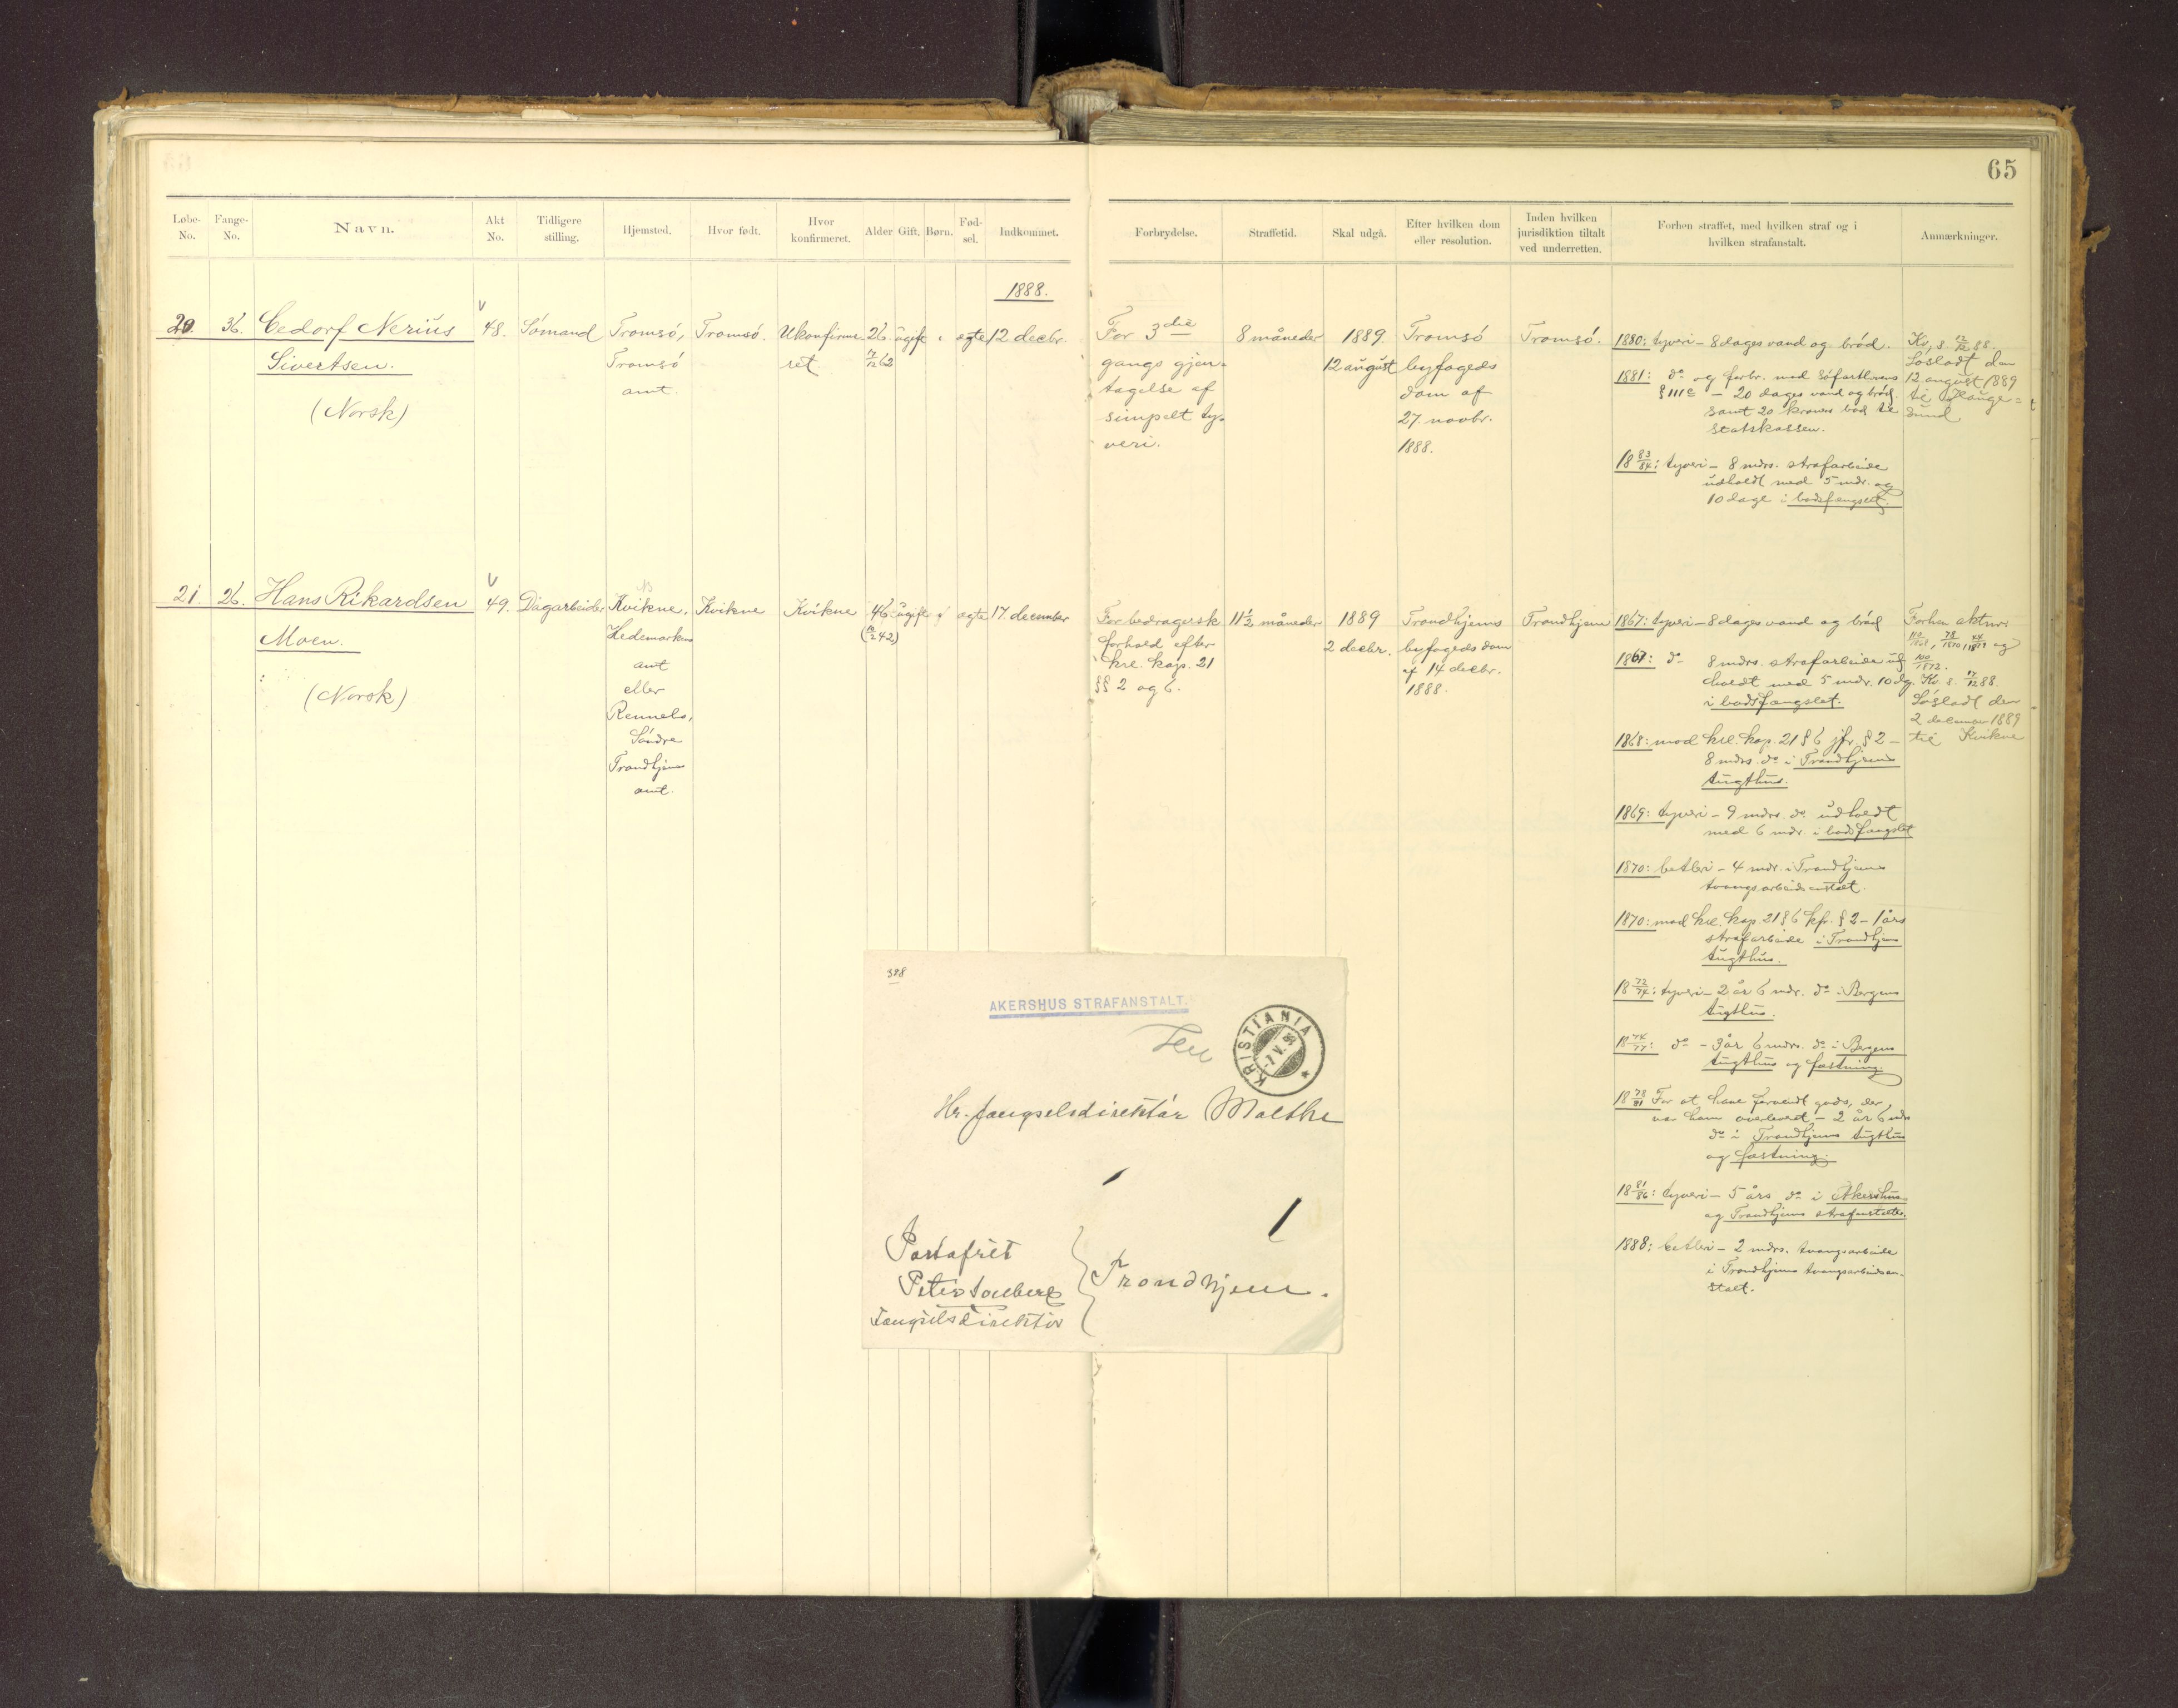 65
Løbe-No. Fange-No. Navn. Akt No. Tidligere stilling. Hjemsted. Hvor født. Hvor konfirmeret. Alder Gift. Børn. Fød-sel. Indkommet. Forbrydelse. Straffetid. Skal udgå. Efter hvilken dom eller resolution. Inden hvilken jurisdiktion tiltalt ved underretten. Forhen straffet, med hvilken straf og i hvilken strafanstalt. Anmærkninger.
1888.
20. 36. Cedorf Nerius
Sivertsen.
(Norsk)
48.
Sømand
Tromsø,
Tromsø
amt.
Tromsø.
Ukonfirme-
ret
26.
7/12 62
ugift
ægte
12 decbr.
For 3die
gangs gjen-
tagelse af
simpelt ty-
veri.
8 måneder
1889.
12 august
Tromsø
byfogeds
dom af
27. novbr.
1888.
Tromsø.
1880: tyveri - 8 dages vand og brød.
1881: do og forbr. mod søfartlovens
§ 111 c - 20 dages vand og brød
samt 20 kroners bod til
statskassen.
18 83/84: tyveri - 8 mdrs. strafarbeide
udholdt med 5 mdr. og
10 dage i bodsfængslet.
Kv. s. 12/12 88.
Løsladt den
12 august 1889
til Hauge=
sund
21. 26. Hans Rikardsen
Moen.
(Norsk)
49.
Dagarbeider
Kvikne,
Hedemarkens
amt
eller
Rennebo,
Søndre
Trondhjems
amt.
Kvikne
Kvikne
46
ugift
ægte
17. december
For bedragersk
forhold efter
krl. kap. 21
§§ 2 og 6.
11½ måneder
1889
2 decbr.
Trondhjems
byfogeds dom
af 14 decbr.
1888.
Trondhjem
1867: tyveri - 8 dages vand og brød
1867: do 8 mdrs. strafarbeide ud
holdt med 5 mdr. 10 dg.
i bodsfængslet.
1868: mod krl. kap. 21 § 6 jfr. § 2 -
8 mdrs. do i Trondhjems
tugthus.
1869: tyveri - 9 mdrs. do udholdt
med 6 mdr. i bodsfængslet
1870: betleri - 4 mdr. i Trondhjems
tvangsarbeidsanstalt.
1870: mod krl. kap 21 § 6 kfr. § 2 - 1 års
strafarbeide i Trondhjems
tugthus.
18 72/74: tyveri - 2 år 6 mdr. do i Bergens
tugthus.
18 74/77: do - 3 år 6 mdrs. do i Bergens
tugthus og fæstning.
18 78/81 For at have forvendt gods, der
var ham overleveret - 2 år 6 mdrs
do i Trondhjems tugthus
og fæstning.
18 81/86: tyveri - 5 års do i Akershus
og Trondhjems strafanstalter.
1888: betleri - 2 mdrs. tvangsarbeide
i Trondhjems tvangsarbeidsan-
stalt.
Forhen aktnr:
78/1870, og
100/1872.
Kv. s. 17/12 88.
Løsladt den
2 december 1889
til Kvikne
388
AKERSHUS STRAFANSTALT.
KRISTIANIA
Hr. fængselsdirektør Malthe
Portofrit
Fængselsdirektør
Trondhjem.